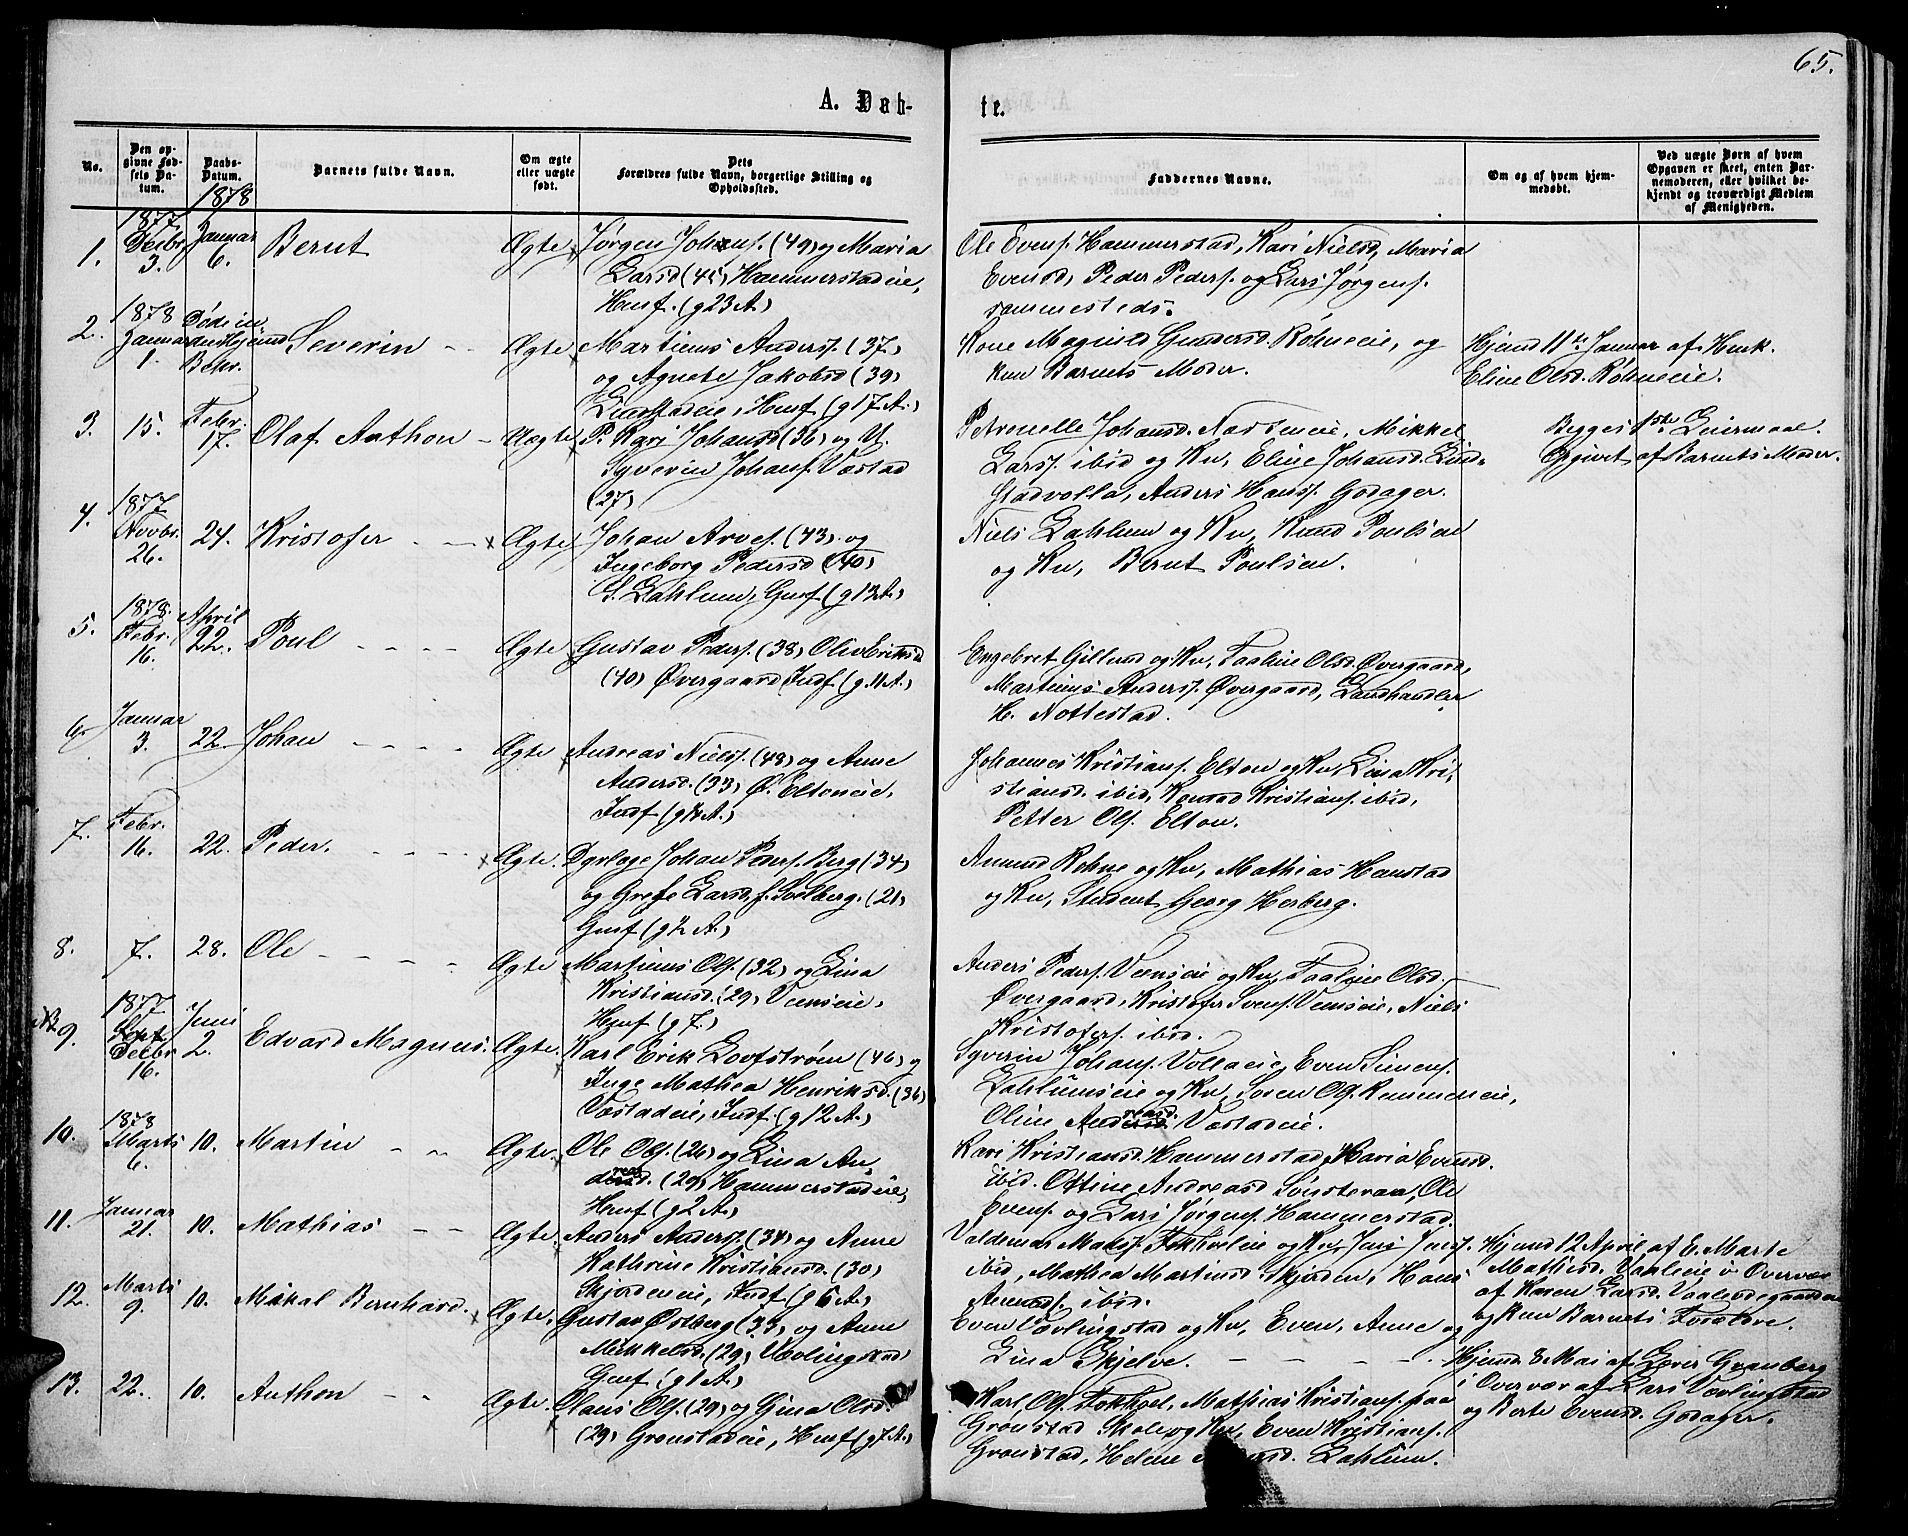 65.
A. Døb-
te.
No.
Den op-
givne Fød-
sels Da-
tum.
Daabs-
Datum.
Barnets fulde Navn.
Om ægte
eller uægte
født.
Dets
Forældres fulde Navn, borgerlige Stilling og
Opholdssted.
Faddernes Navne.
Om og af hvem hjem-
medøbt.
Ved uægte Børn af hvem
Opgaven er skeet, enten Bar-
nemoderen, eller hvilket be-
kjendt og troværdigt Medlem
af Menigheden.
1878
1. 1877 Decbr 3. Januar 6. Bernt Ægte Jørgen Johans. (49) og Maria
Larsd (45) Hammerstadeie,
Husf. (g 23 A)
Ole Evens. Hammerstad, Kari Nielsd, Maria
Evensd, Peder Peders. og Lars Jørgens.
sammesteds.
2. 1878 Januar 1. Severin Ægte Martinus Anders. (37)
og Agnete Jakobsd (39)
Lundstadeie, Husf (g 17 A.)
Kone Magnild Gundersd. Røhneeie, og
kun Barnets Moder.
Hjemd 11te Januar af Husk.
Eline Olsd. Røhneeie.
3. 15. Febr. 17. Olaf Anthon Uægte P. Kari Johansd (36) og U.
Syverin Johans. Væstad
(27)
Petronelle Johansd. Næstneie, Mikkel
Larss. ibid og Ku, Eline Johansd. Lund-
stadvolla, Anders Hanss. Godager.
Begges 1ste Leiermaal.
Opgivet af Barnets Moder.
4. 1877 Novbr. 26. 24. Kristofer Ægte Johan Arves. (43). og
Ingeborg Pedersd (40)
S. Dahlum, Gusf (g 13 A)
Niels Dahlum og Ku, Knud Poulsen
og Ku, Bernt Poulsen.
5. 1878. Febr. 16. April 22. Poul Ægte Gustav Peders. (38) Oliv Eriksd
(40) Øvergaard Indf (g. 11 A.)
Engebret Gillund og Ku, Taaline Olsd. Øvergaard,
Martinus Anders. Øvergaard, Landhandler
H. Nottestad.
6. Januar 3. 22. Johan Ægte Andreas Niels. (48) og Anne
Andersd. (33) Ø. Eltoneie,
Indf (g 14 A.)
Johannes Kristians. Elton og Ku, Lina Kri-
stiansd. ibid, Konrad Kristians. ibid,
Petter Ols. Elton.
7. Febr. 16. 22. Peder. Ægte. Dyrlæge Johan Peders. Berg (34)
og Grefe Larsd, f. Solberg. (21)
Gusf (g 2 A.)
Amund Rohne og Ku, Mathias Hanstad
og Ku, Student Georg Herberg.
8. 7. 28. Ole Ægte Martinus Ols. (32) og Lina
Kristiansd. (29) Veenseie,
Husf (g 7.)
Anders Peders. Veenseie og Ku, Taaline Olsd.
Øvergaard, Kristofer Svens. Veenseie, Niels
Kristofers. ibid.
NB. 9. 1877 Decbr 16. Juni 2. Edvard Magnus. Ægte. Karl Erik Lovfstrøm (46) og
Inge Mathea Henriksd. (36)
Væstadeie, Indf. (g 12 A.)
Syverin Johans. Vollaeie, Even Simens.
Dahlumseie og Ku, Soren Ols. Rummeneie,
Oline Andreasd. Væstadeie.
10. 1878 Marts 6. 10. Martin Ægte. Ole Ols. (26) og Lina An-
dreasd. (29) Hammerstadeie,
Husf (g 2 A.)
Kari Kristiansd. Hammerstad, Maria Evensd.
ibid. Ottine Andreasd Sønsteraa, Ole
Evens. og Lars Jørgens. Hammerstad.
11. Januar 21. 10. Mathias Ægte. Anders Anders. (34) og Anne
Kathrine Kristiansd. (30)
Skjordeneie, Indf (g 6 A.)
Valdemar Mat.s. Fokhøleie og Ku, Jens Jens.
ibid, Mathea Martinsd. Skjorden, Hans
Amunds. ibid.
Hjemd 12 April af E. Marte
Mathisd. Vaaleeie i Overvær
af Karen Larsd. Vaalodegaarden
og kun Barnets Forældre.
12. Marts 9. 10. Mikal Bernhard. Ægte. Gustav Østberg (33) og Anne
Mikkelsd. (29) Vævlingstad
Gusf (g 1 A.)
Even Vævlingstad og Ku, Even, Anne og
Lina Skjelve.
Hjemd. 8 Mai af Lover Granberg
i Overvær af Lars Vævlingstad
og Berte Evensd. Godager.
13. 22. 10. Anthon Ægte. Olaus Ols. (29) og Gina Olsd.
(29) Grønstadeie, Husf (g 7 A.)
Karl Ols. Fokhøl, Mathias Kristians. paa
Grønstad Skole og Ku, Even Kristians.
Grønstad, Helene Dahlum.